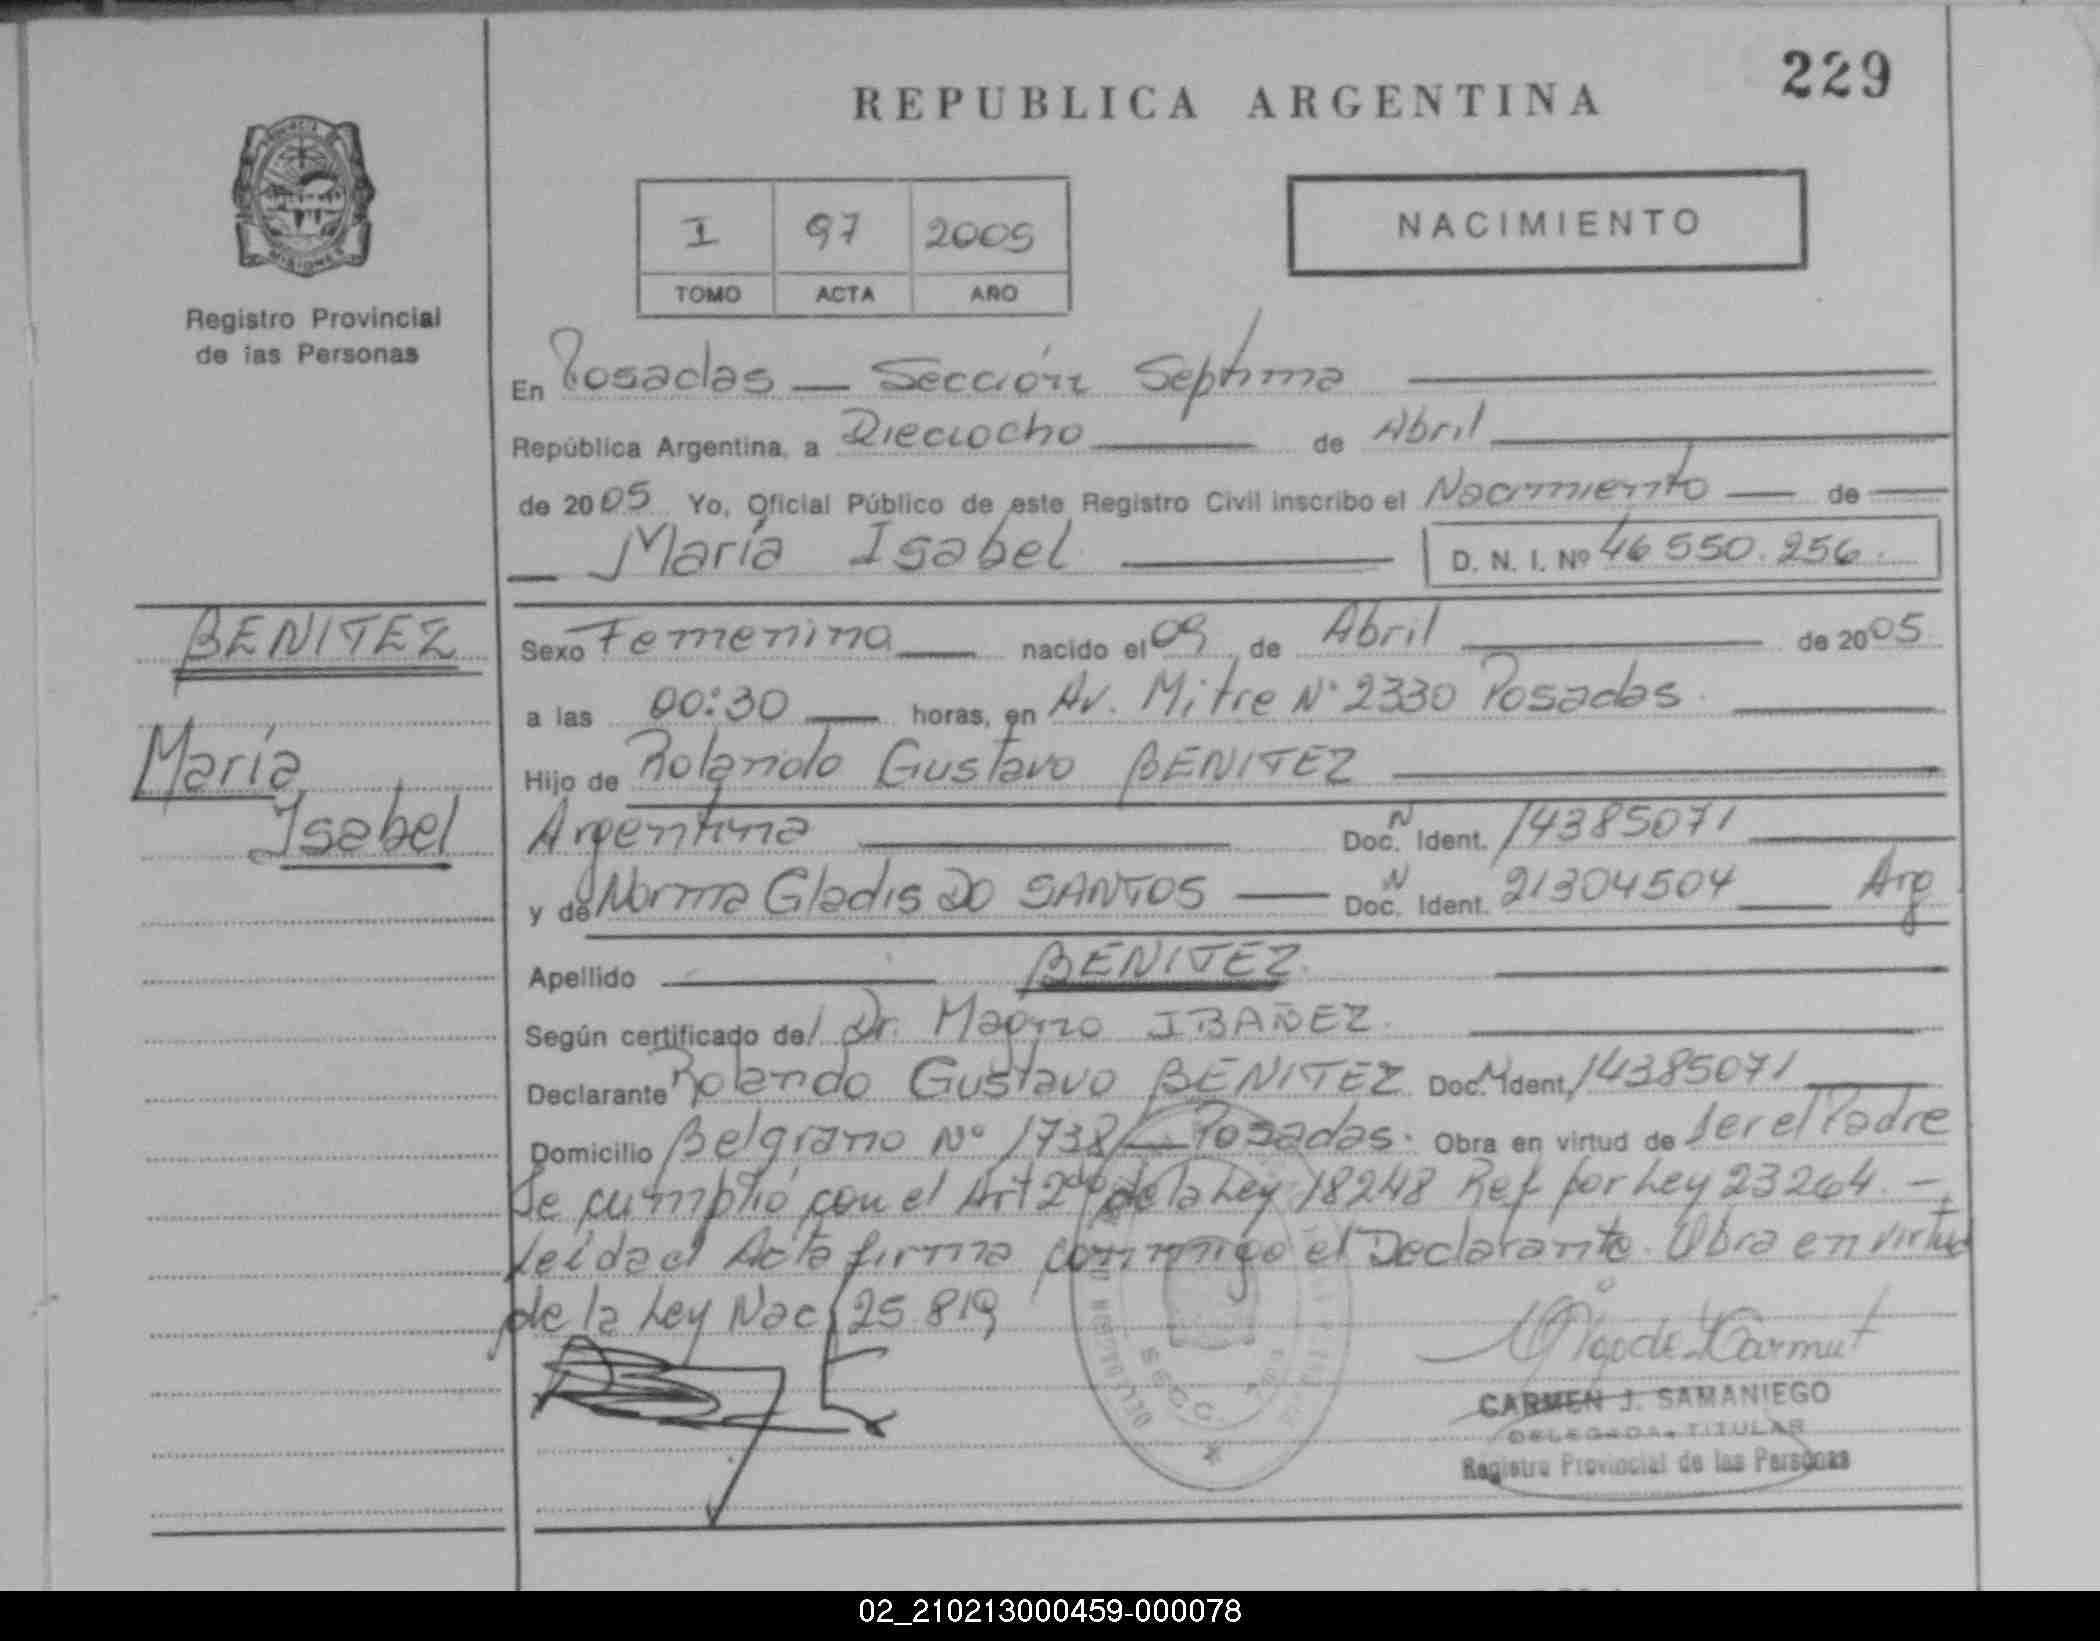 229
REPUBLICA ARGENTINA
I 97 2005
TOMO ACTA AÑO
NACIMIENTO
MISIONES
Registro Provincial
de las Personas
En Posadas — Sección Septima
República Argentina, a Dieciocho de Abril
de 2005 Yo, Oficial Público de este Registro Civil inscribo el Nacimiento de
María Isabel D. N. I. Nº 46 550.256.
BENITEZ
María
Isabel
Sexo Femenina nacido el 09 de Abril de 2005
a las 00:30 horas, en Av. Mitre Nº 2330 Posadas.
Hijo de Rolando Gustavo BENITEZ
Argentina Doc. N Ident. 14385071
y de Norma Gladis DO SANTOS Doc. N Ident. 21304504 Arg
Apellido BENITEZ
Según certificado del Dr. Magno IBAÑEZ
Declarante Rolando Gustavo BENITEZ Doc. N Ident. 14385071
Domicilio Belgrano Nº 1738 — Posadas. Obra en virtud de ser el Padre
Se cumplió con el Art 2do de la Ley 18248 Ref por Ley 23264. —
Leida el Acta firma conmigo el Declarante. Obra en virtud
de la Ley Nac 25.819
SECC.
CARMEN J. SAMANIEGO
DELEGADA TITULAR
Registro Provincial de las Personas
02_210213000459-000078